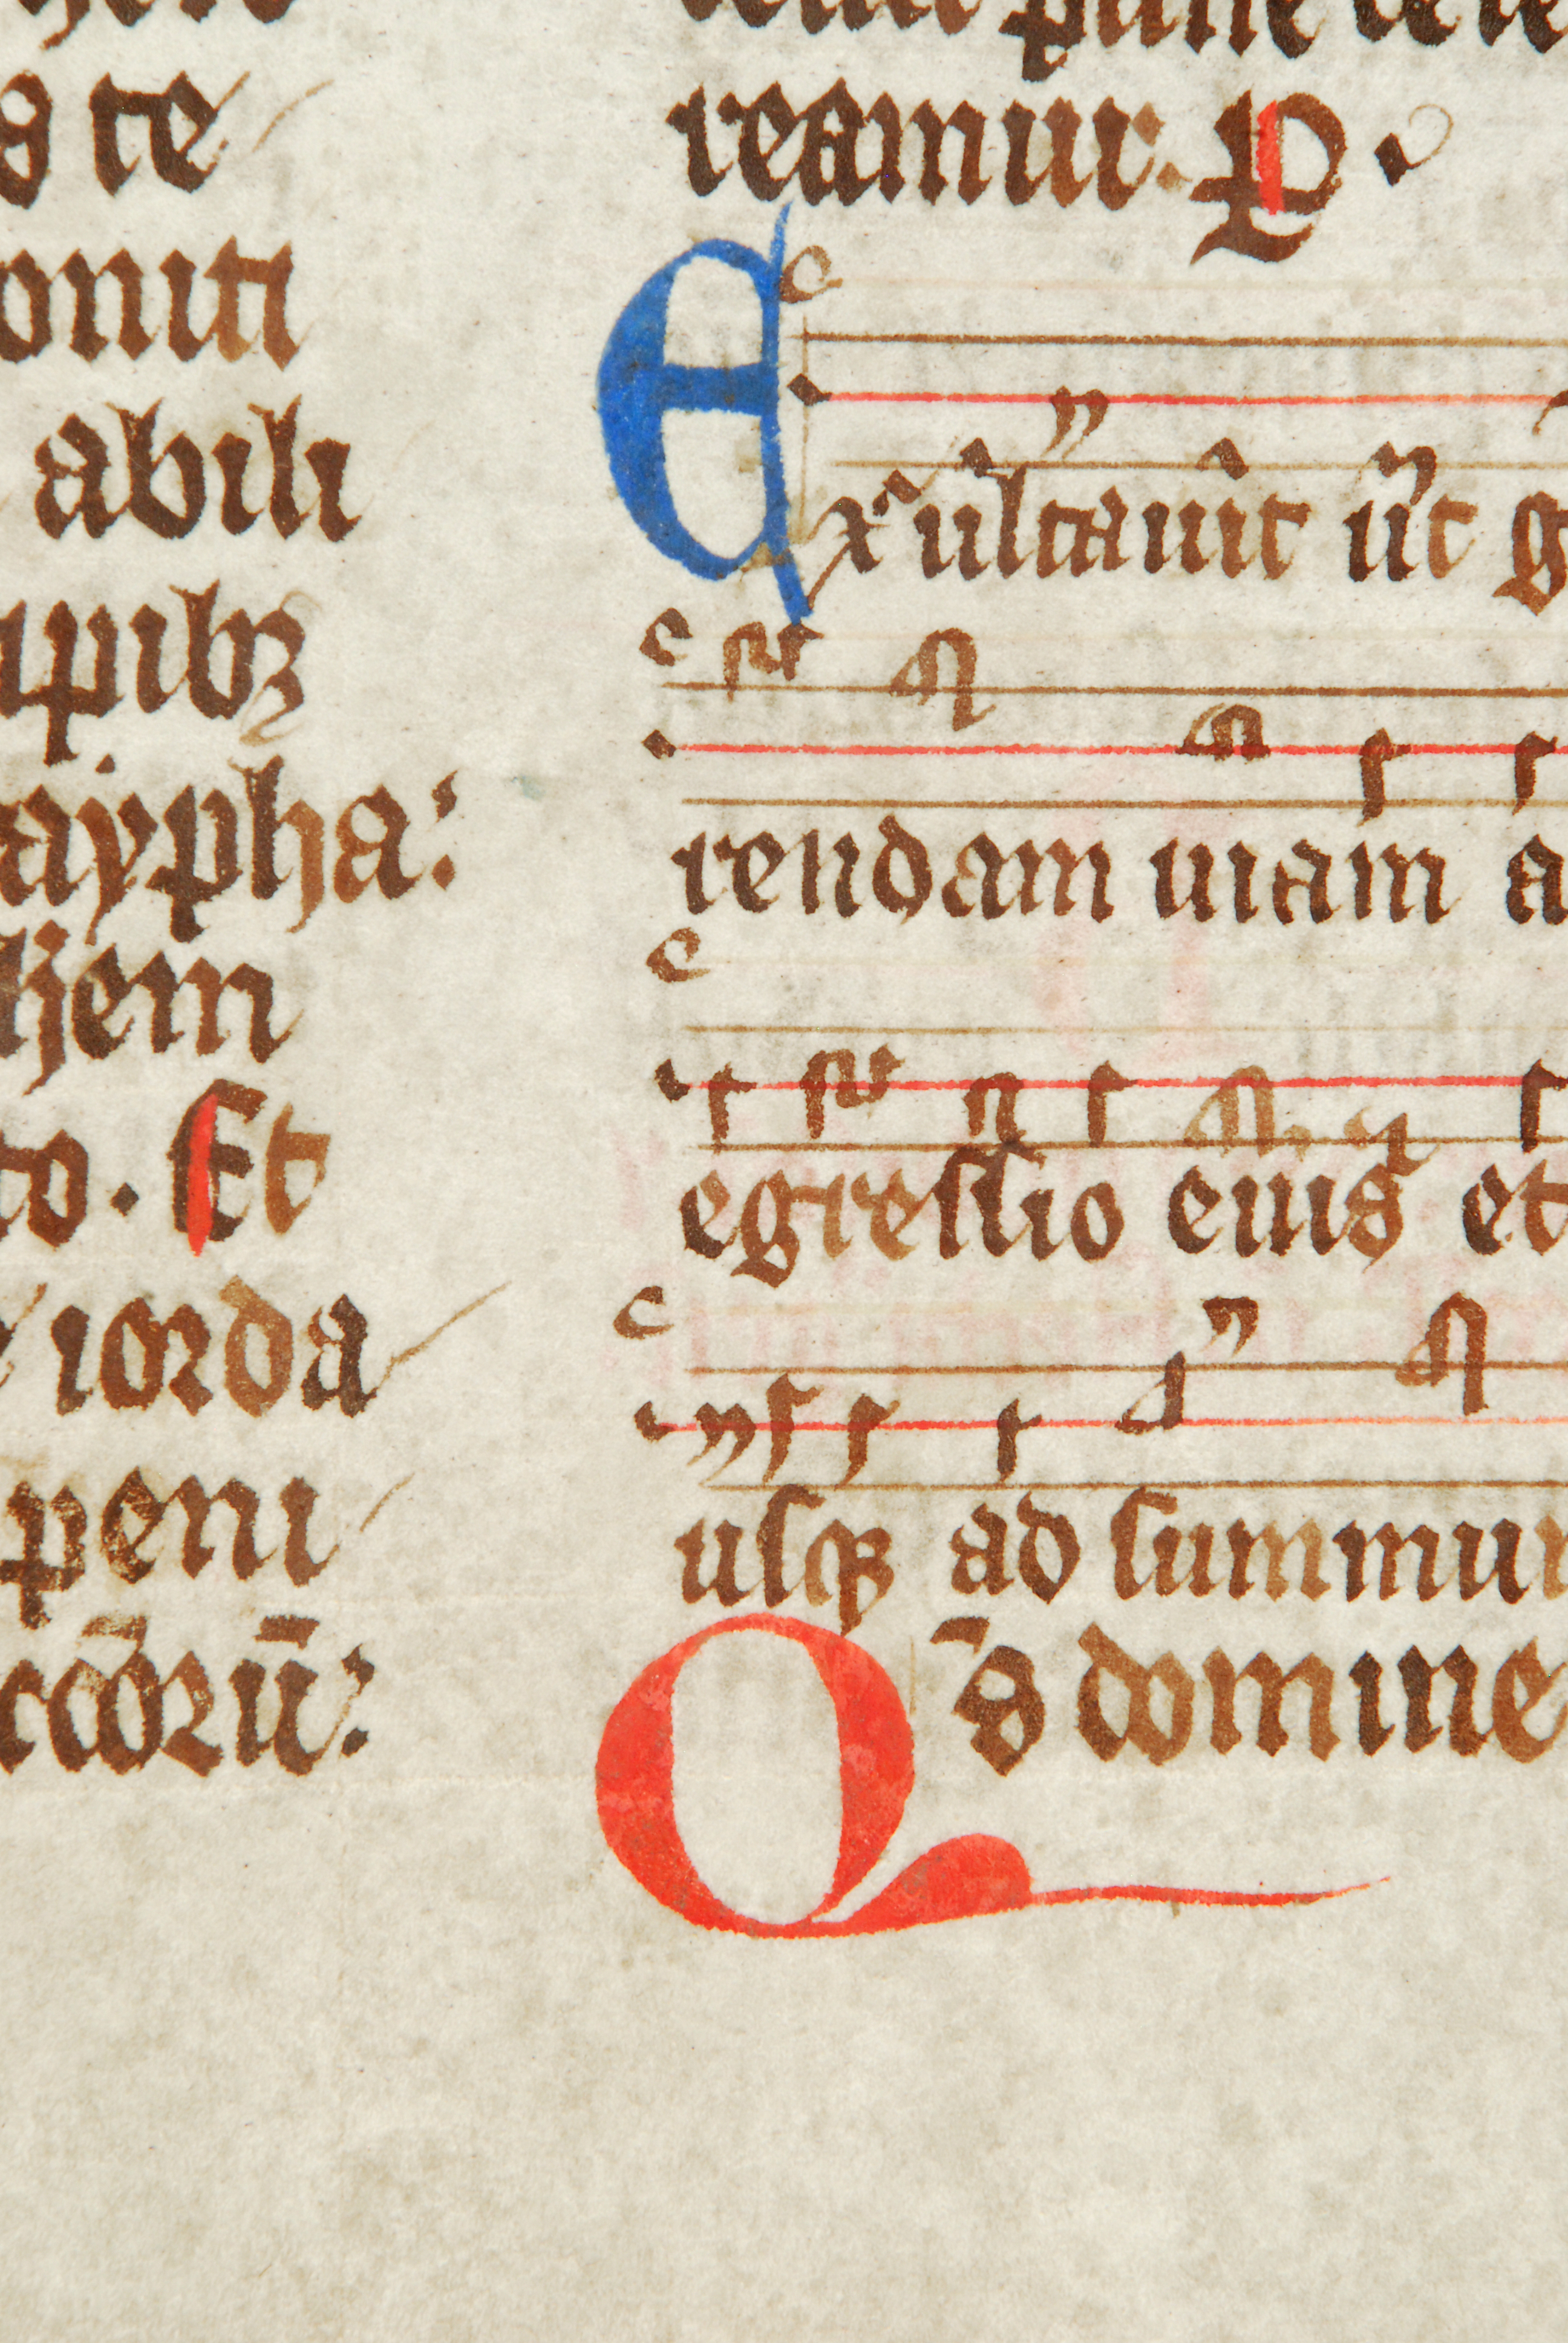 s te
oniti
abili
upibꝫ
aypha:
hem
to. Et
iorda
peni
coꝛū:
reamur. P.
Exultauit ut g
rendam uiam a
egressio eius et
usqꝫ ad summum
Qs̄ domine